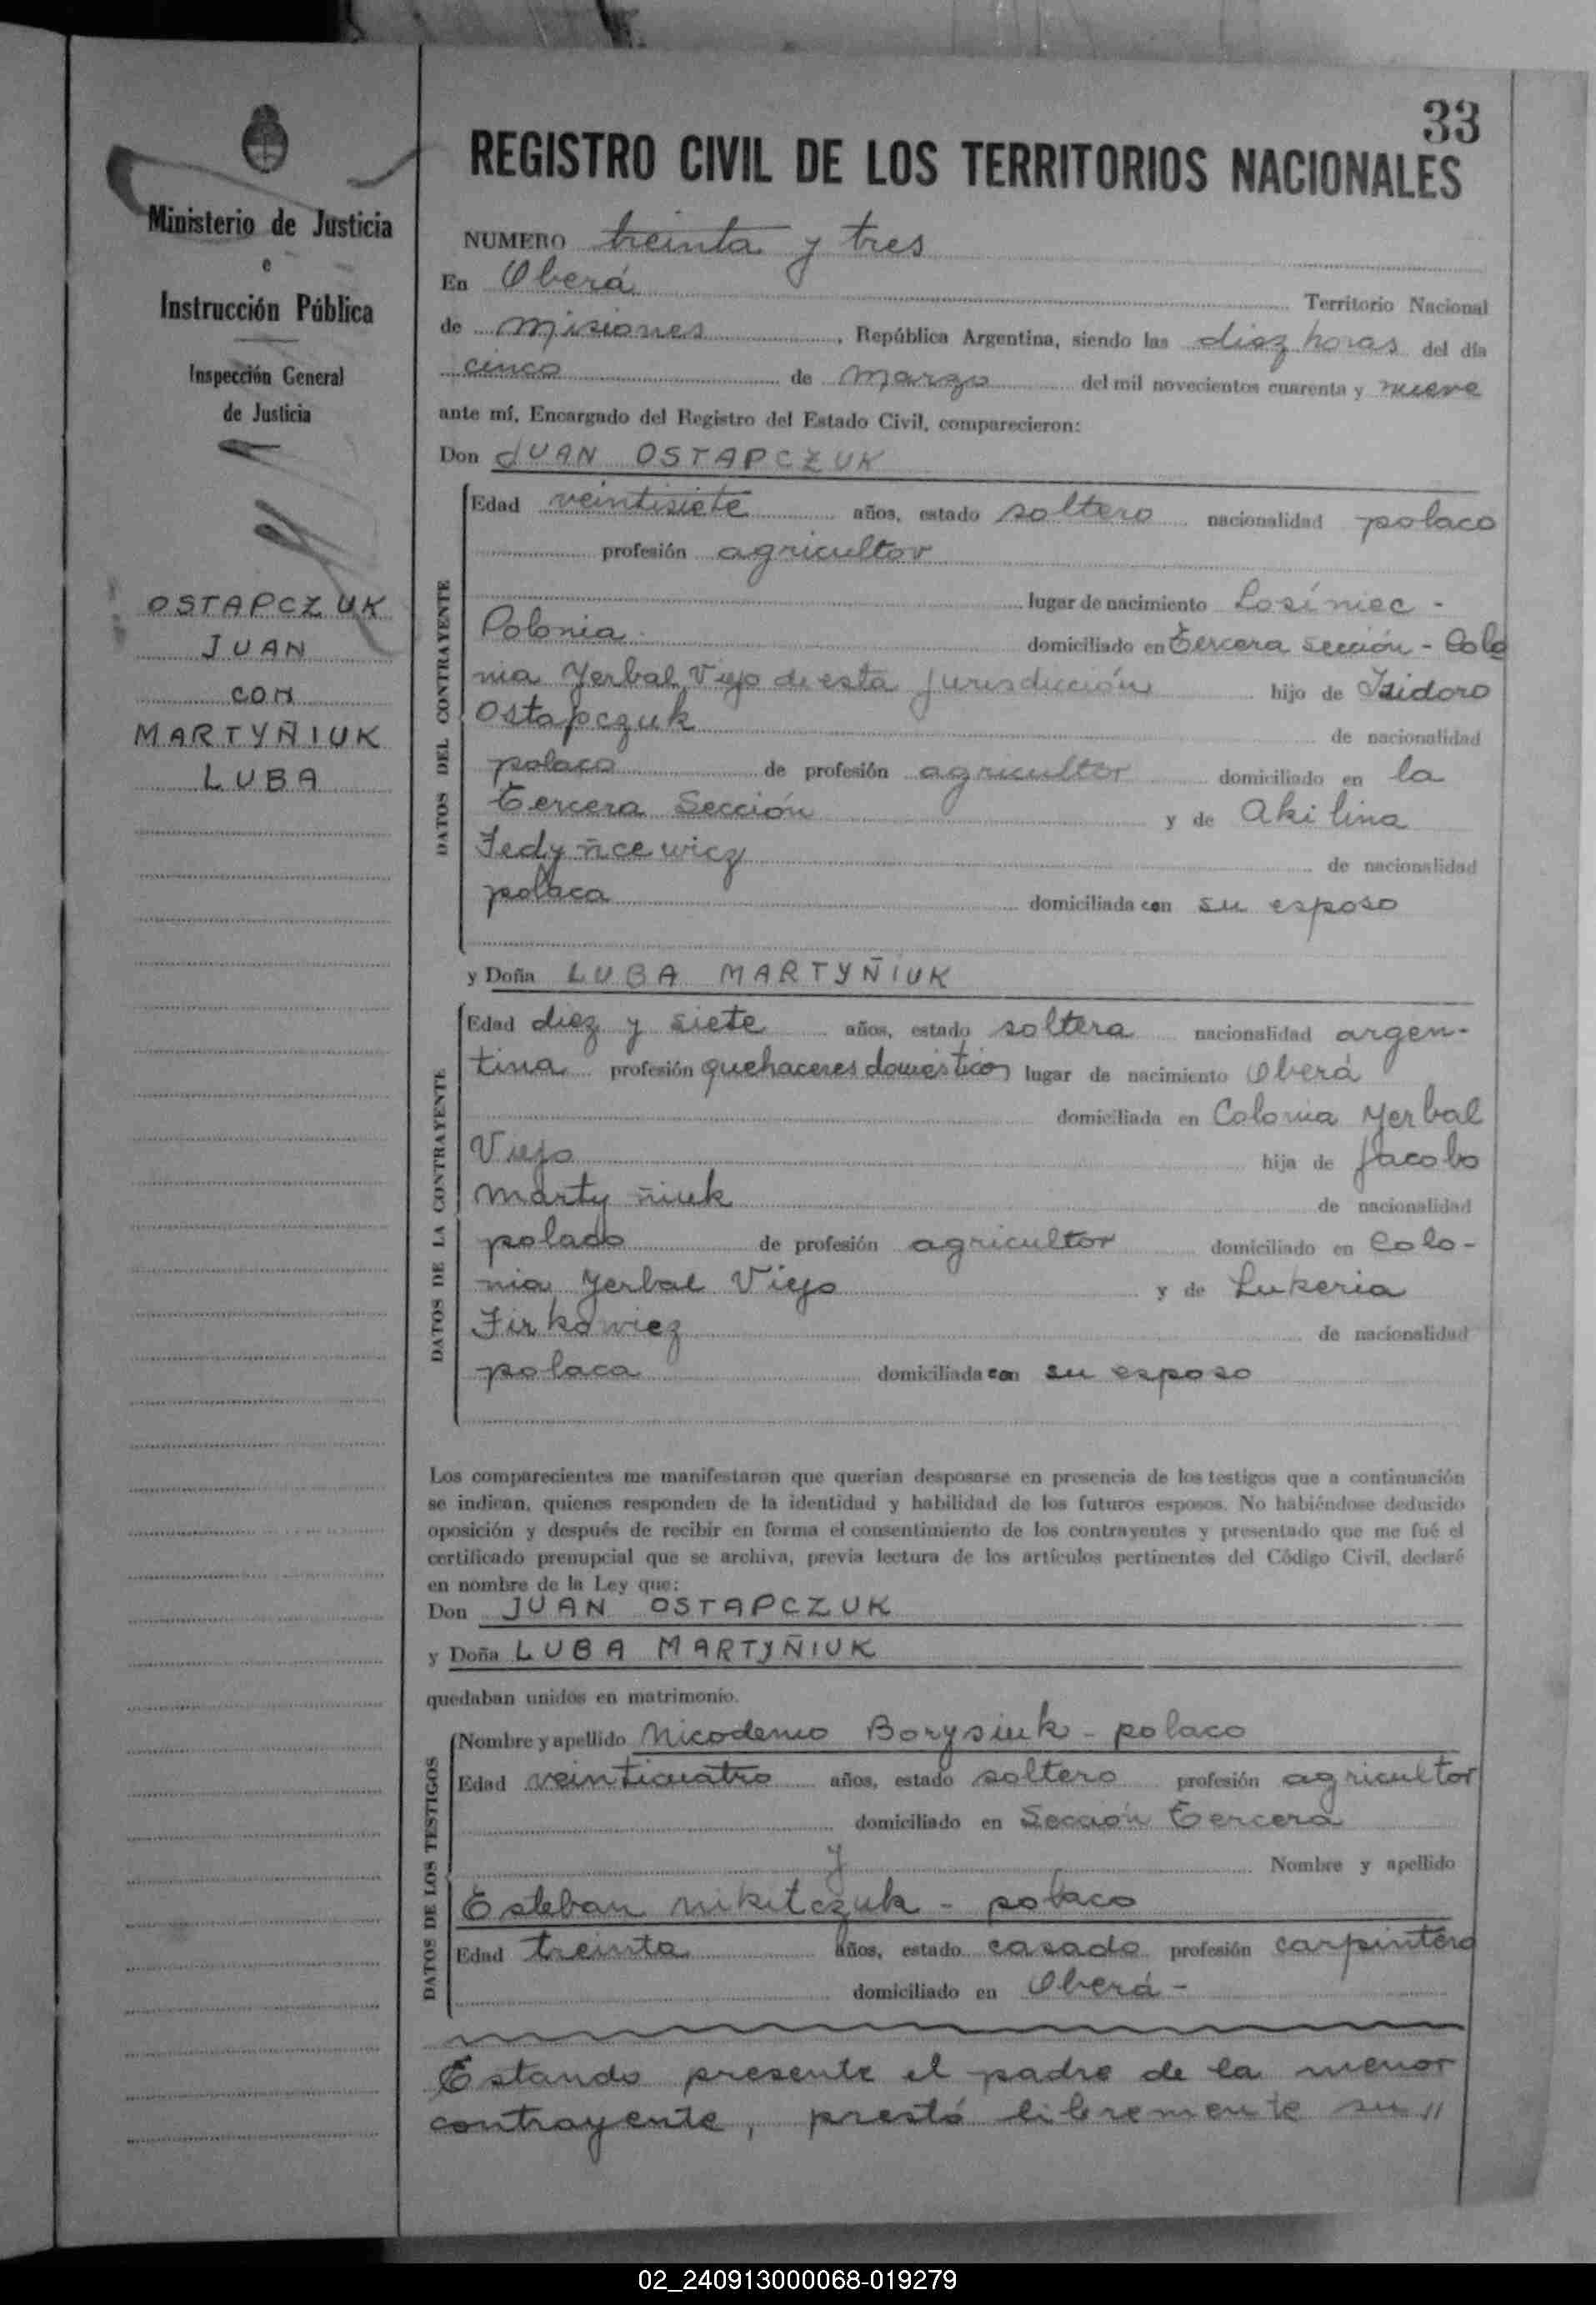 33
REGISTRO CIVIL DE LOS TERRITORIOS NACIONALES
Ministerio de Justicia
e
Instrucción Pública
Inspección General
de Justicia
OSTAPCZUK
JUAN
CON
MARTYÑIUK
LUBA
NUMERO treinta y tres
En Oberá Territorio Nacional
de Misiones, República Argentina, siendo las diez horas del día
cinco de Marzo del mil novecientos cuarenta y nueve
ante mí, Encargado del Registro del Estado Civil, comparecieron:
Don JUAN OSTAPCZUK
DATOS DEL CONTRAYENTE
Edad veintisiete años, estado soltero nacionalidad polaco
profesión agricultor
lugar de nacimiento Losíniec -
Polonia domiciliado en Tercera sección - Colo
nia Yerbal Viejo de esta jurisdicción hijo de Isidoro
Ostapczuk de nacionalidad
polaco de profesión agricultor domiciliado en la
Tercera Sección y de Akilina
Fedyñcewicz de nacionalidad
polaca domiciliada con su esposo
y Doña LUBA MARTYÑIUK
DATOS DE LA CONTRAYENTE
Edad diez y siete años, estado soltera nacionalidad argen-
tina profesión quehaceres domésticos lugar de nacimiento Oberá
domiciliada en Colonia Yerbal
Viejo hija de Jacobo
Martyñiuk de nacionalidad
polaco de profesión agricultor domiciliado en Colo-
nia Yerbal Viejo y de Lukeria
Firkowicz de nacionalidad
polaca domiciliada con su esposo
Los comparecientes me manifestaron que querían desposarse en presencia de los testigos que a continuación
se indican, quienes responden de la identidad y habilidad de los futuros esposos. No habiéndose deducido
oposición y después de recibir en forma el consentimiento de los contrayentes y presentado que me fué el
certificado prenupcial que se archiva, previa lectura de los artículos pertinentes del Código Civil, declaré
en nombre de la Ley que:
Don JUAN OSTAPCZUK
y Doña LUBA MARTYÑIUK
quedaban unidos en matrimonio.
DATOS DE LOS TESTIGOS
Nombre y apellido Nicodemo Borysiuk - polaco
Edad veinticuatro años, estado soltero profesión agricultor
domiciliado en Sección Tercera
y Nombre y apellido
Esteban Nikitczuk - polaco
Edad treinta años, estado casado profesión carpintero
domiciliado en Oberá -
Estando presente el padre de la menor
contrayente, prestó libremente su //
02_240913000068-019279